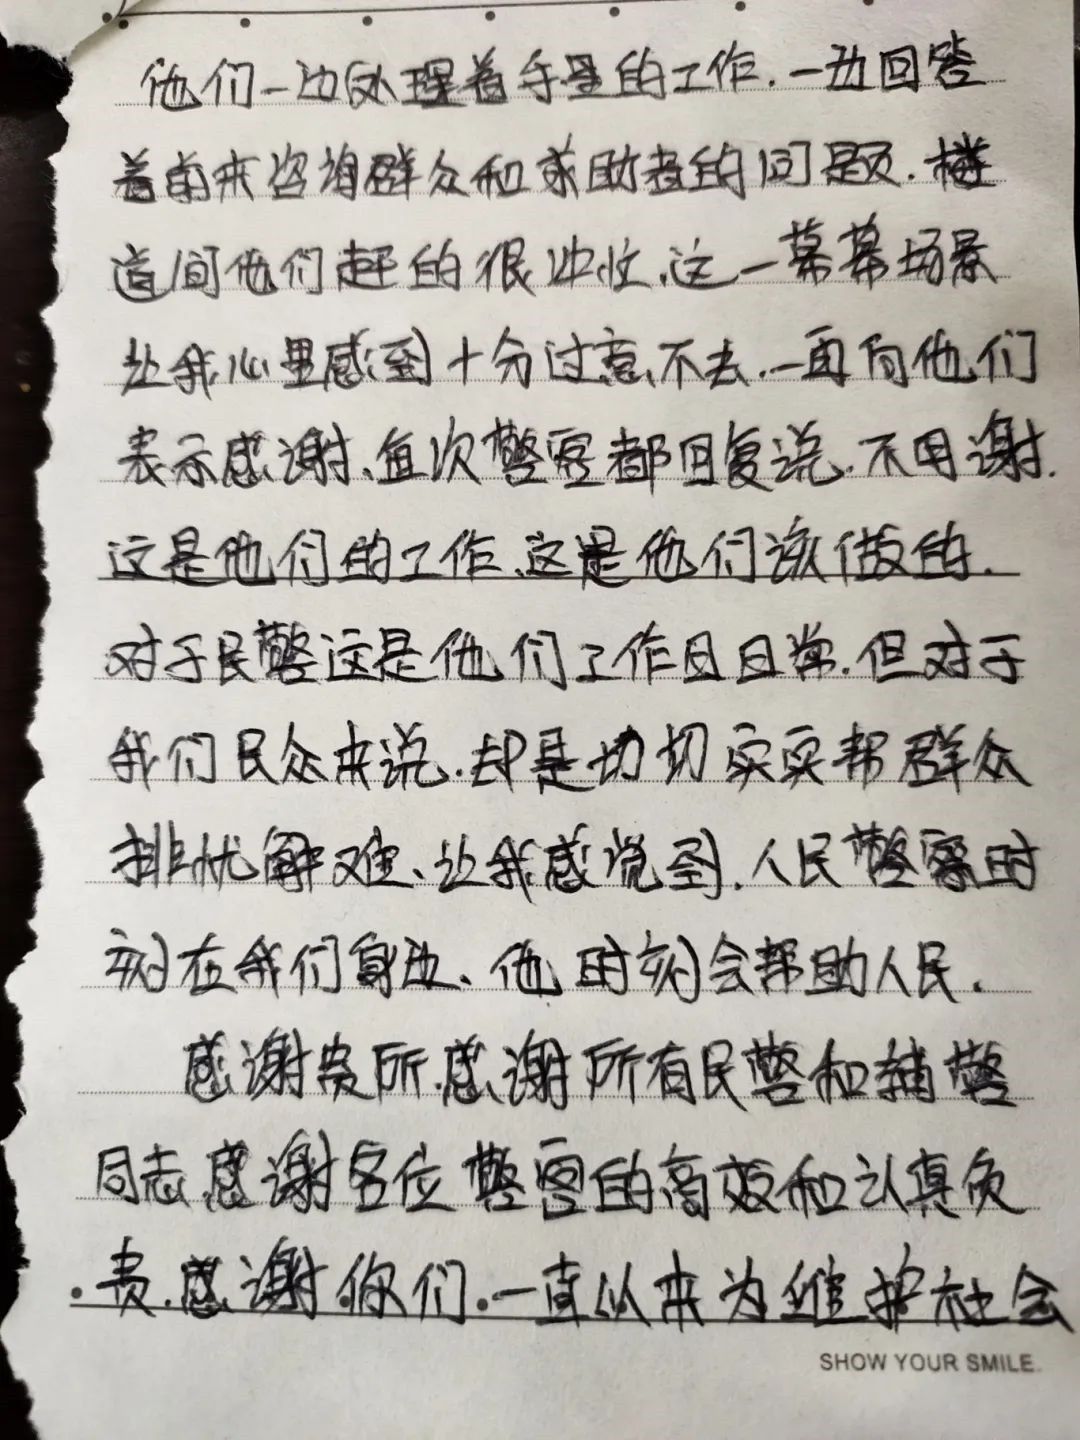 他们一边处理着手里的工作.一边回答
着前来咨询群众和求助者的问题.楼
道间他们赶的很冲忙、这一幕幕场景
让我心里感到十分过意不去.一再向他们
表示感谢、每次警察都回复说.不用谢.
这是他们的工作、这是他们该做的.
对于民警这是他们工作日日常.但对于
我们民众来说.却是切切实实帮群众
排忧解难、让我感觉到.人民警察时
刻在我们身边、他时刻会帮助人民.
感谢贵所.感谢所有民警和辅警
同志感谢各位警察的高效和认真负
责.感谢你们.一直以来为维护社会
SHOW YOUR SMILE.